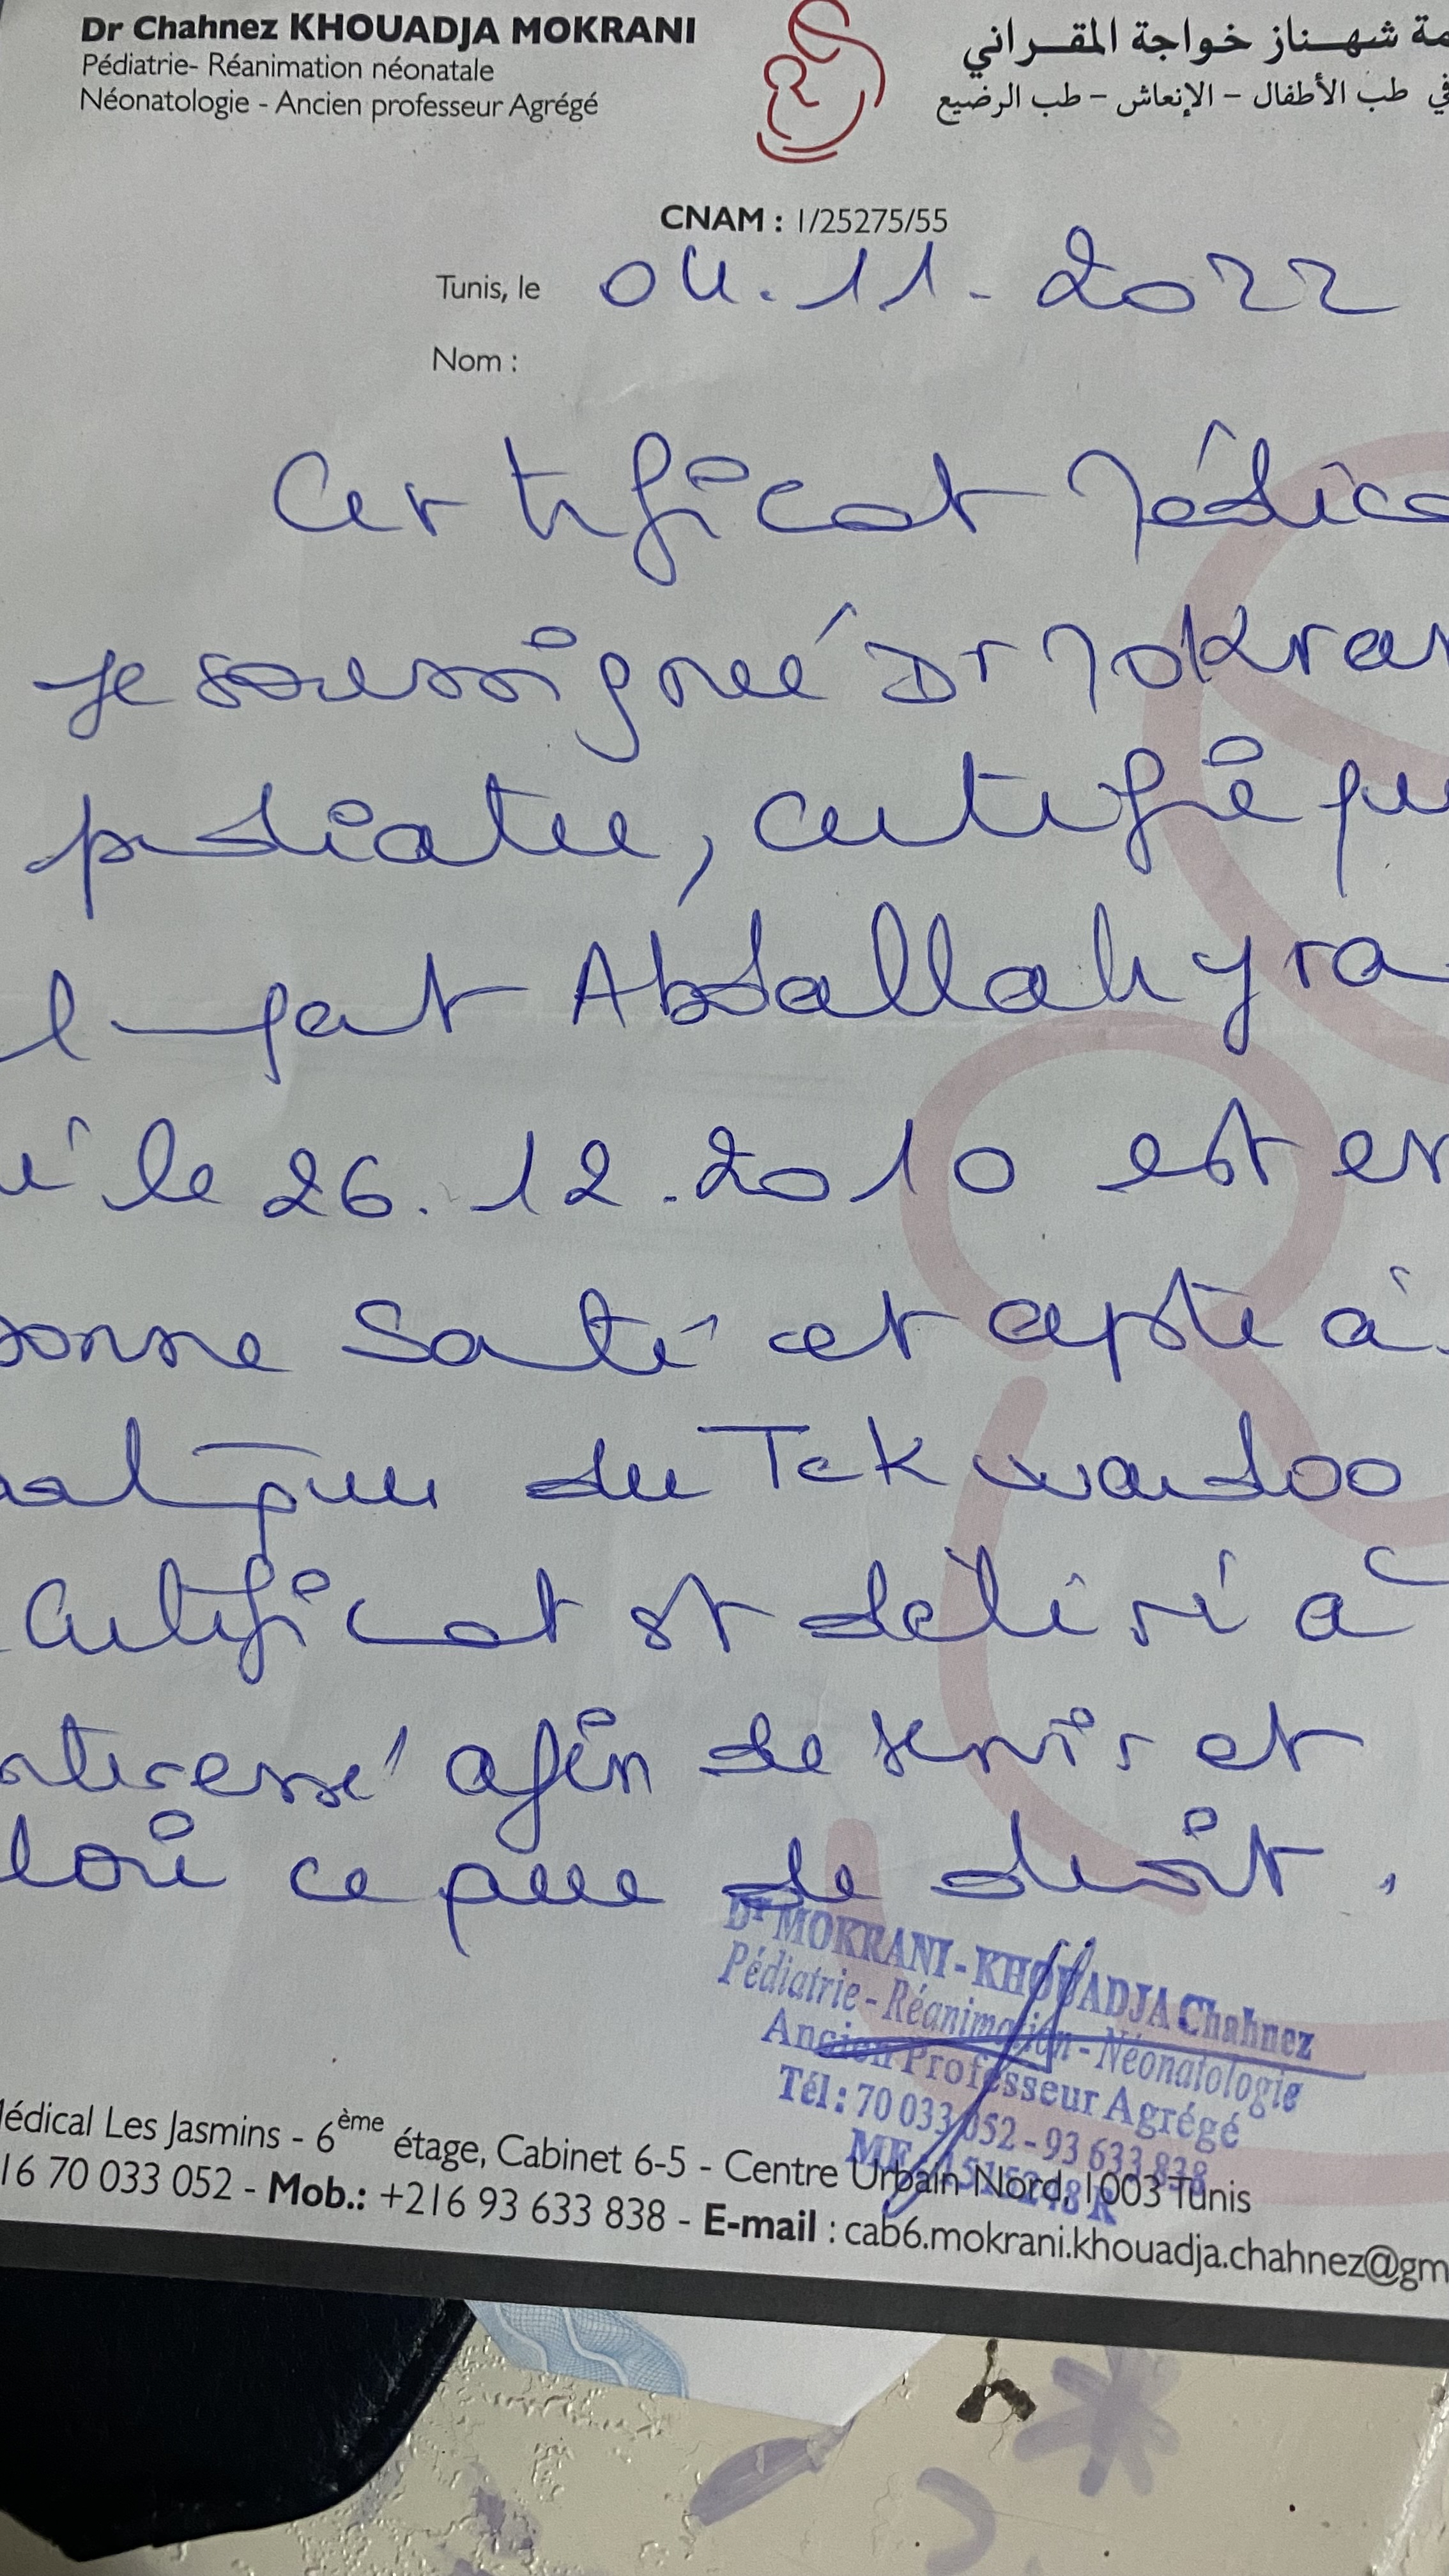 Dr Chahnez KHOUADJA MOKRANI
Pédiatrie- Réanimation néonatale
Néonatologie - Ancien professeur Agrégé
مة شهناز خواجة المقراني
في طب الأطفال - الإنعاش - طب الرضيع
CNAM : 1/25275/55
Tunis, le 04.11.2022
Nom :
Certificat Médica
Je soussignée Dr Mokran
pédiatre, certifie que
l'enfant Abdallah yra
é le 26.12.2010 est en
bonne santé et apte à
atique du Tekwandoo
certificat est délivré à
ntéressé afin de servir et
loir ce que de droit.
Dr MOKRANI - KHOUADJA Chahnez
Pédiatrie - Réanimation - Néonatologie
Ancien Professeur Agrégé
Tél : 70 033 052 - 93 633 838
édical Les Jasmins - 6ème étage, Cabinet 6-5 - Centre Urbain Nord, 1003 Tunis
16 70 033 052 - Mob.: +216 93 633 838 - E-mail : cab6.mokrani.khouadja.chahnez@gm